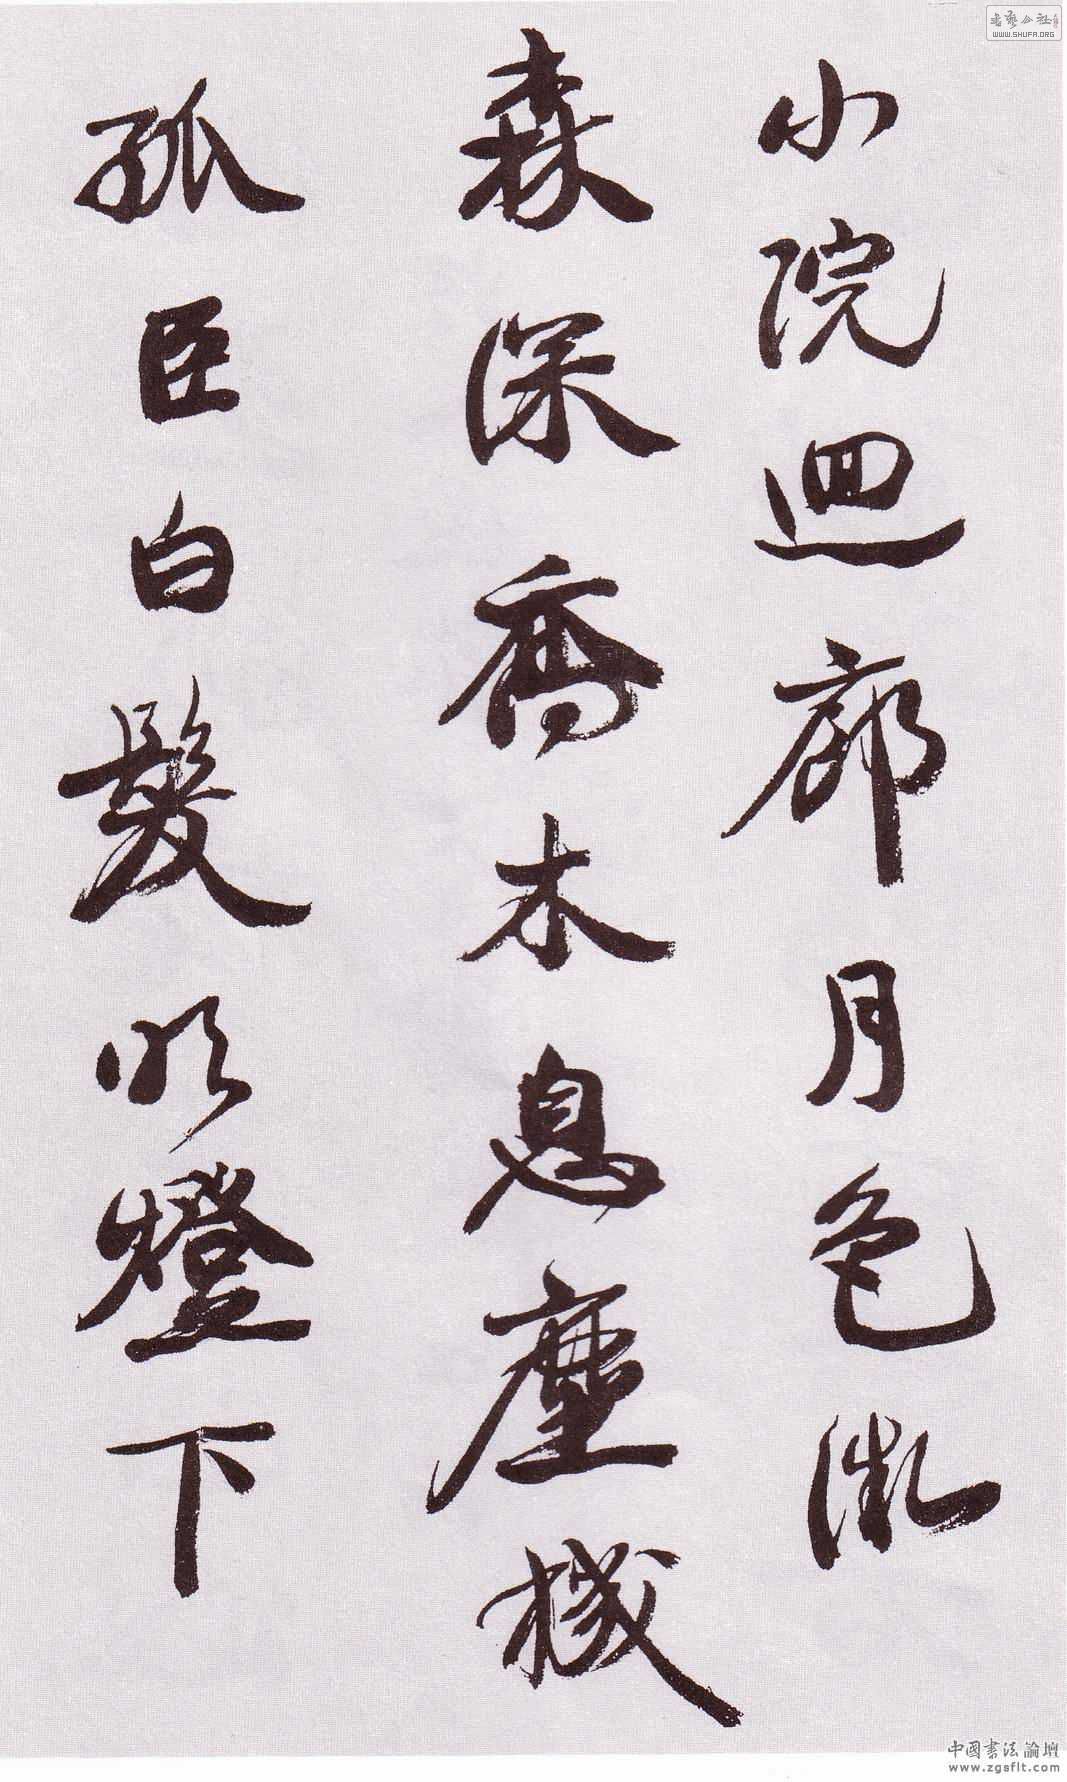 小院迴廊月色微
森深喬木息塵機
孤臣白髮明燈下
書藝公社
WWW.SHUFA.ORG
中國書法論壇
www.zgsflt.com